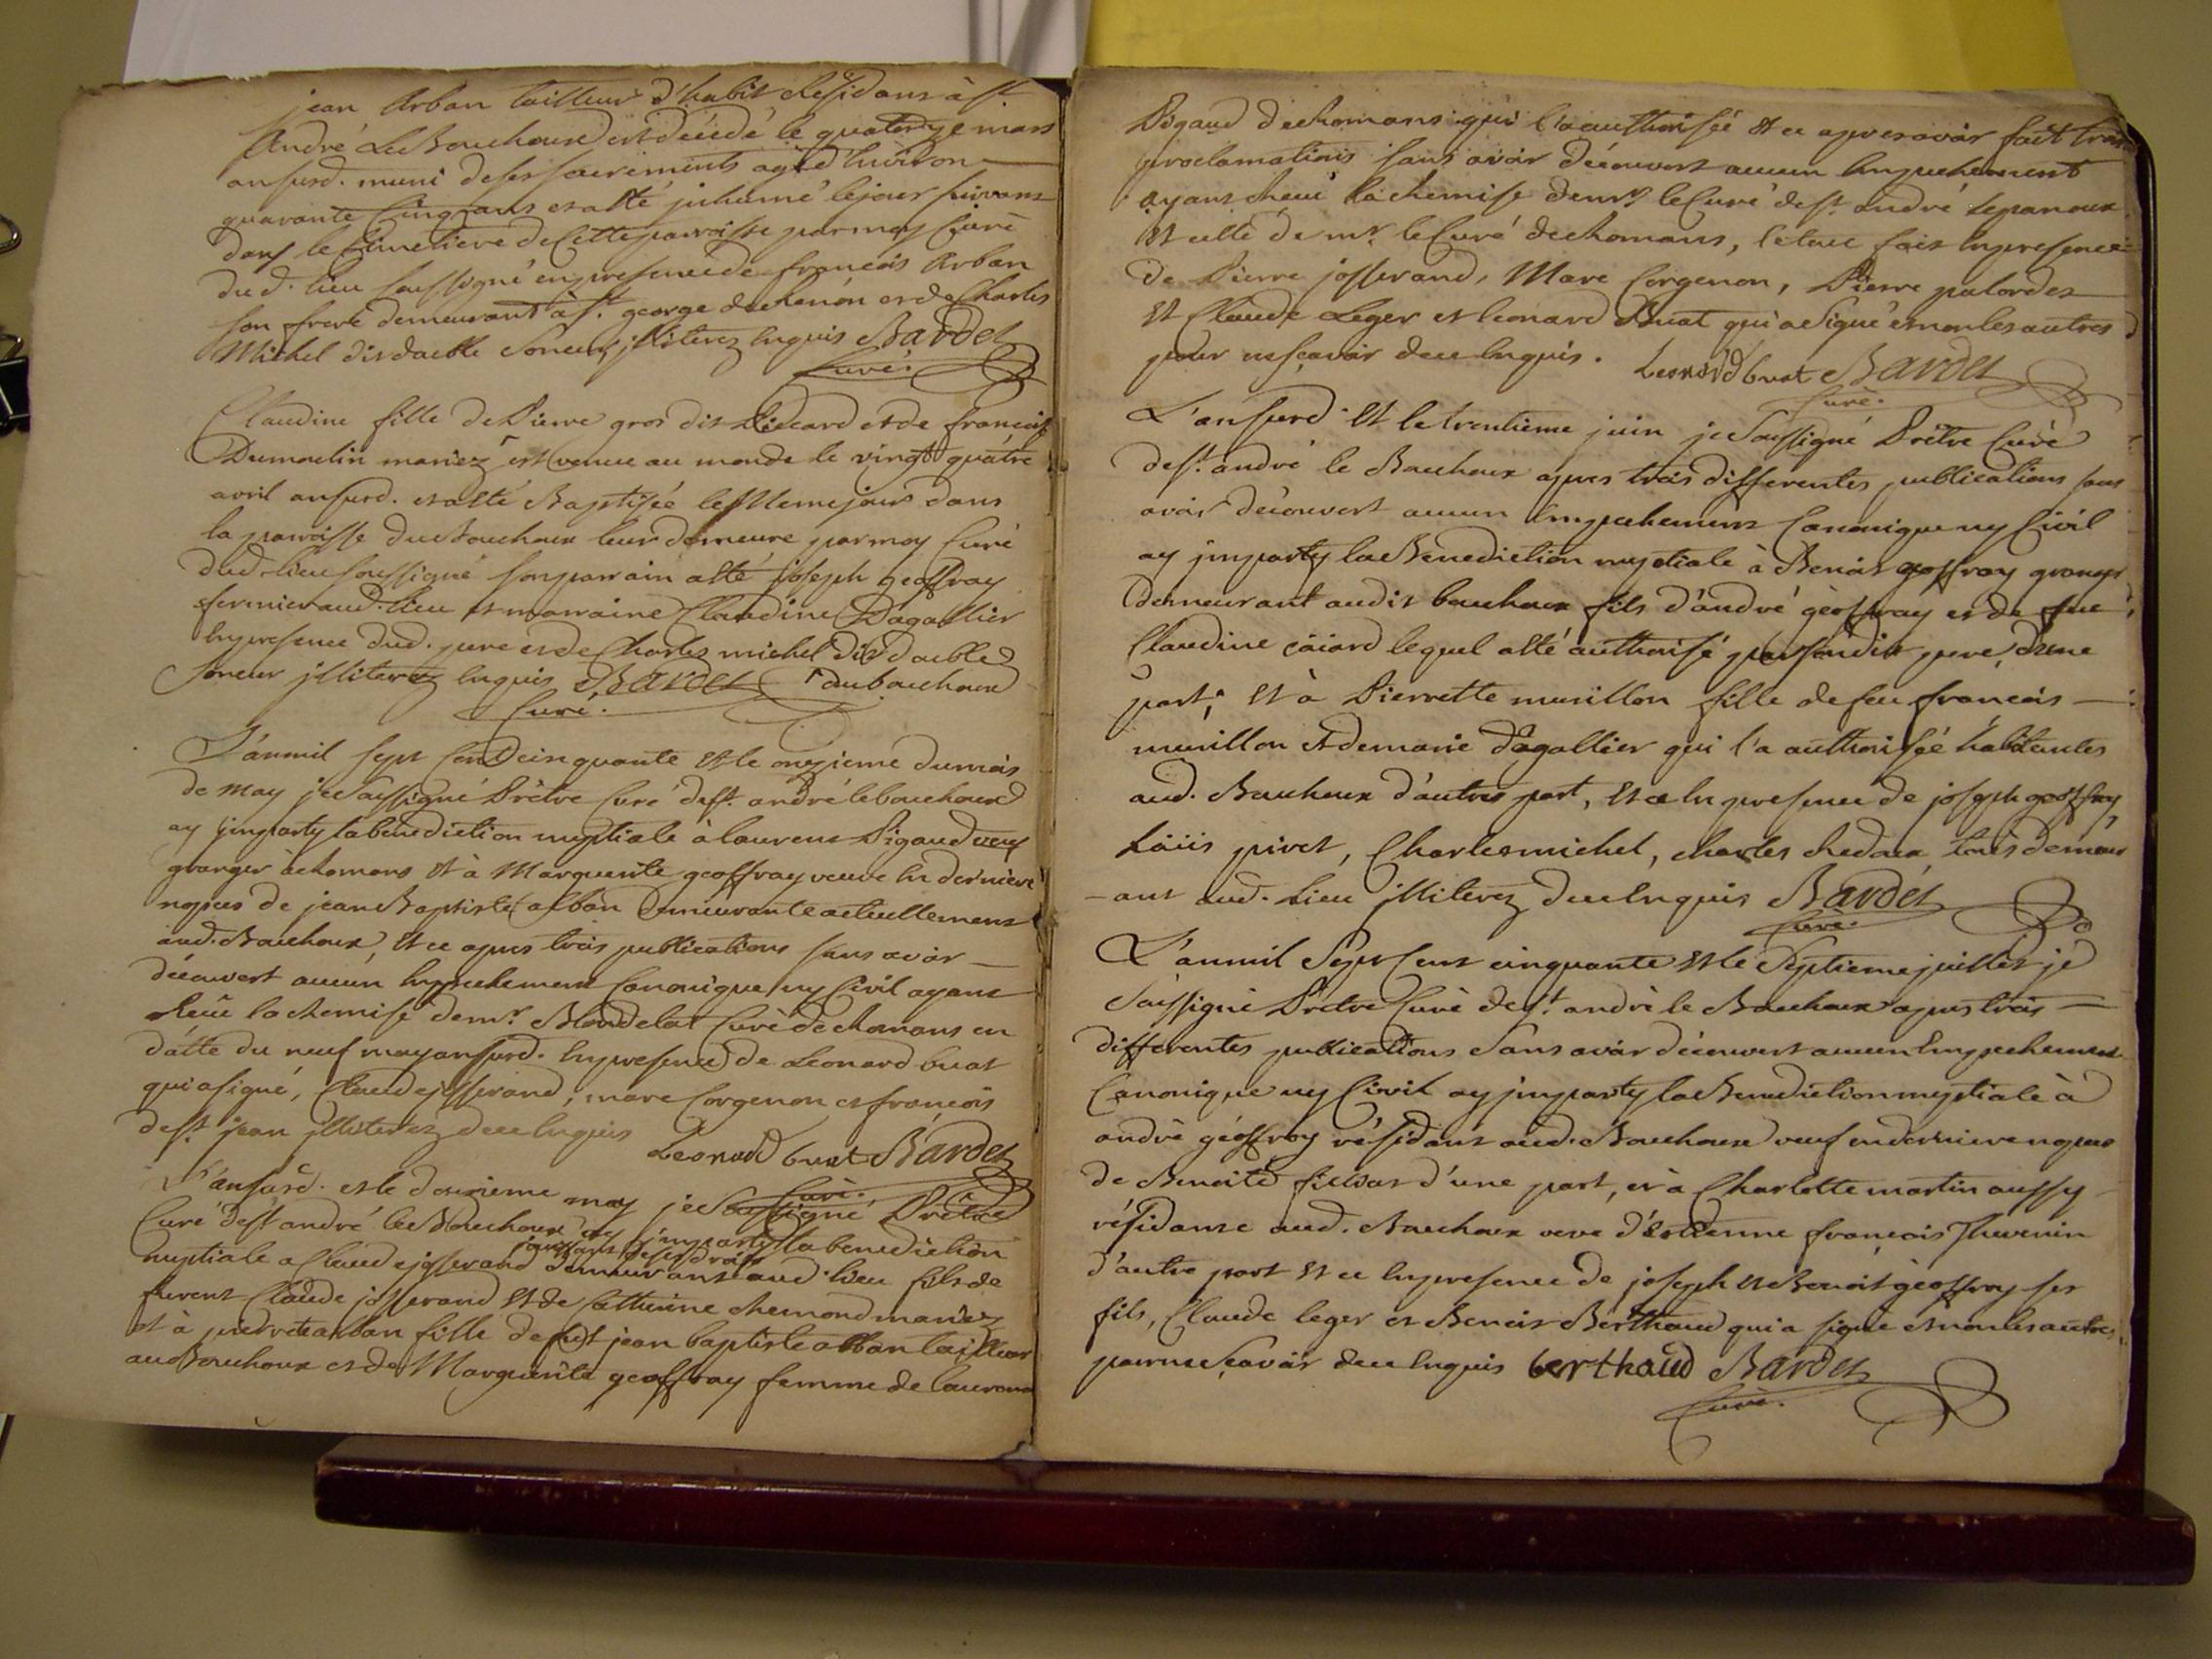 jean Arban tailleur d'habit Residant à st
André Le Bouchoux est décédé le quatorze mars
ansusd. muni deses sacrements agé d'Environ
quarante Cinq ans et atté jnhumé le jour suivant
dans le Cimetiere de Cette paroisse par moy Curé
dud. lieu soussigné en presence de francois Arban
son frere demeurant à st. george de Renon et de Charles
Michel dit daeble soneur jlliterez Enquis Bardet
Curé.
Claudine fille de Pierre gros dit Piccard et de francoise
Dumoulin mariez est venue au monde le vingt quátre
avril ansusd. et atté Baptisée le Meme jour dans
la paroisse du Bouchoux leur demeure par moy Curé
dud. lieu soussigné son parrain atté joseph geoffray
fermier aud. lieu et marraine Claudine Dagallier
En presence dud. pere et de Charles michel dit daeble
soneur jlliterez Enquis Bardet du bouchoux
Curé.
L'an mil sept Cent cinquante et le onzieme du mois
de may je soussigné Prêtre Curé de st. andré le bouchoux
ay jmparty la benediction nuptiale à laurent Pigaud veuf
granger à Romans et à Marguerite geoffray veuve En derniere
nopces de jean Baptiste alban demeurante actuellement
aud. Bouchoux, et ce apres trois publications sans avoir
découvert aucun Empechement Canonique ny Civil ayant
Reçu la Remise de mr. Blondelat Curé de Romans en
datte du neuf may ansusd. En presence de Leonard buat
qui a signé, Claude josserand, marc Corgenon et francois
de st. jean jlliterez de ce Enquis Leonard buat Bardet
Curé.
L'an susd. et le douzieme may je soussigné Prêtre
Curé de st andré le Bouchoux ay jmparty la benediction
jouissant deses droits
nuptiale a Claude josserand demeurant aud. lieu fils de
furent Claude josserand et de Catherine chemond mariez
et à pierrette alban fille de fut jean baptiste alban tailleur
au Bouchoux et de Marguerite geoffray femme de laurent
Pigaud de Romans qui l'a authorisée et ce apres avoir fait trois
proclamations sans avoir découvert aucun Empechement
ayant Reçu la Remise de mr. le Curé de st. andré le panoux
et celle de mr. le Curé de Romans, le tout fait En presence
de Pierre josserand, Marc Corgenon, Pierre palordet
et Claude Leger et leonard Buat qui a signé et non les autres
pour ne sçavoir de ce Enquis. Leonard buat Bardet
Curé.
L'an susd. et le trentieme juin je soussigné Prêtre Curé
de st. andré le Bouchoux apres trois differentes publications sans
avoir découvert aucun Empechement Canonique ny Civil
ay jmparty la Benediction nuptiale à Benoit geoffray granger
demeurant audit bouchoux fils d'andré geoffray et de fue
Claudine caiard lequel atté authorisé par sondit pere, d'une
part, et à Pierrette murillon fille de feu francois
murillon et de marie dagallier qui l'a authorisée habitantes
aud. Bouchoux d'autre part, et ce En presence de joseph geoffray,
Loüis pivet, Charles michel, charles chedoux tous demeur
-ant aud. Lieu jlliterez de ce Enquis Bardet
Curé.
L'an mil sept Cent cinquante et le septieme juillet je
soussigné Prêtre Curé de st. andré le Bouchoux apres trois
differentes publications sans avoir découvert aucun Empechement
Canonique ny Civil ay jmparty la Benediction nuptiale à
andré geoffray résidant aud. Bouchoux veuf en derniere nopces
de Benoite d'une part, et à Charlotte martin aussy
résidante aud. Bouchoux veve d'Estienne francois Thevenin
d'autre part et ce En presence de joseph et Benoit geoffray ses
fils, Claude leger et Benoit Berthaud qui a signé et non les autres
pour ne sçavoir de ce Enquis berthaud Bardet
Curé.